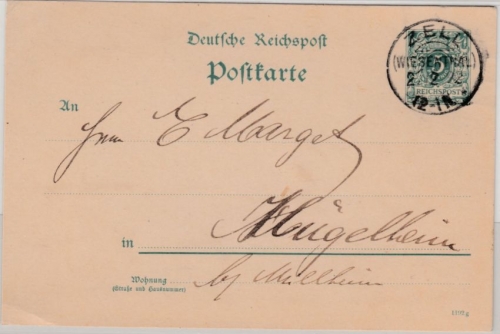 Deutsche Reichspost
Postkarte
ZELL
(WIESENTHAL)
2 2
12-1N.
5
REICHSPOST
An
Herrn E Marget
in Hügelheim
Wohnung
(Straße und Hausnummer)
bei Müllheim